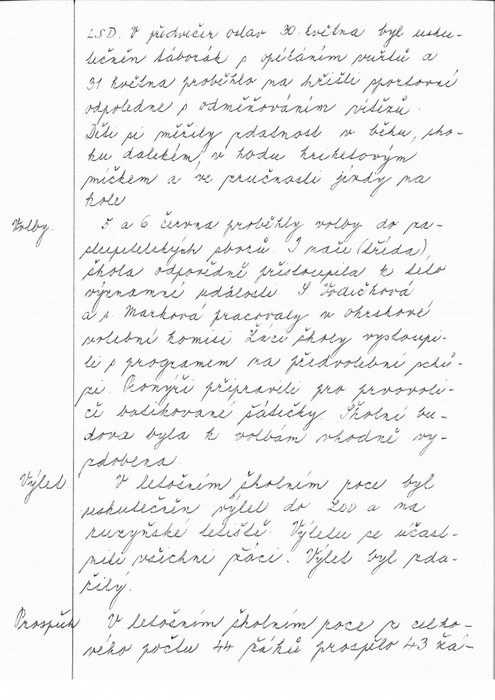 LSD. V předvečer oslav 30. května byl usku-
tečněn táborák s opékáním vuřtů a
31. května proběhlo na hřišti sportovní
odpoledne s odměňováním vítězů.
Děti si měřily zdatnost v běhu, sko-
ku dalekém, v hodu kriketovým
míčkem a ve zručnosti jízdy na
kole
Volby.
5 a 6 června proběhly volby do za-
stupitelských sborů I naše (třída)
škola odpovědně přistoupila k této
významné události S. Vodičková
a s. Marková pracovaly v okrskové
volební komisi Žáci školy vystoupi-
li s programem na předvolební schů-
zi. Pionýři připravili pro prvovoli-
če batikované šátečky Školní bu-
dova byla k volbám vhodně vy-
zdobena
Výlet
V letošním školním roce byl
uskutečněn výlet do ZOO a na
ruzyňské letiště. Výletu se účast-
nili všichni žáci. Výlet byl zda-
řilý.
Prospěch
V letošním školním roce z celko-
vého počtu 44 žáků prospělo 43 žá-